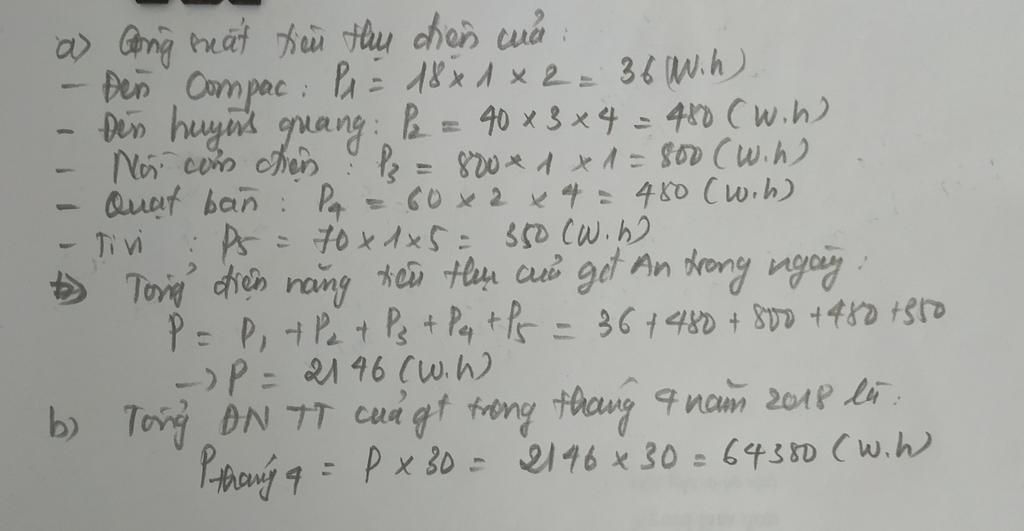 a) Công suất tiêu thụ điện của:
- Đèn Compac: P1 = 18 x 1 x 2 = 36 (W.h)
- Đèn huỳnh quang: P2 = 40 x 3 x 4 = 480 (W.h)
- Nồi cơm điện: P3 = 800 x 1 x 1 = 800 (W.h)
- Quạt bàn: P4 = 60 x 2 x 4 = 480 (W.h)
- Ti vi: P5 = 70 x 1 x 5 = 350 (W.h)
Tổng điện năng tiêu thụ của gđ An trong ngày:
P = P1 + P2 + P3 + P4 + P5 = 36 + 480 + 800 + 480 + 350
-> P = 2146 (W.h)
b) Tổng ĐN TT của gđ trong tháng 4 năm 2018 là:
Ptháng 4 = P x 30 = 2146 x 30 = 64380 (W.h)